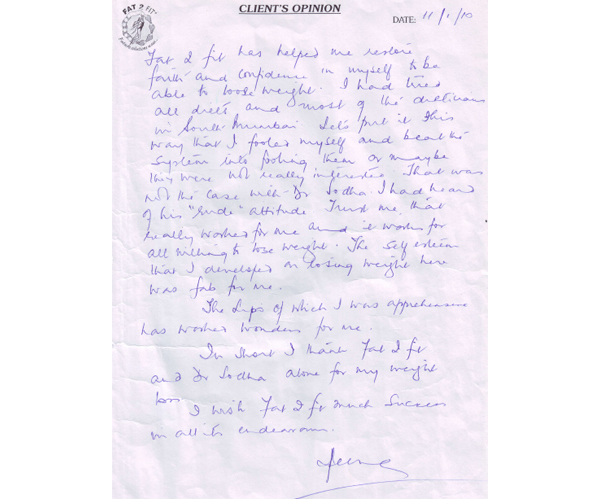 FAT 2 FIT
CLIENT'S OPINION
DATE: 11/1/10
Fat 2 fit has helped me restore
faith and confidence in myself to be
able to loose weight. I had tried
all diets and most of the dieticians
in South Mumbai Let's put it this
way that I fooled myself and beat the
system into fooling them or maybe
they were not really interested. That was
not the case with Dr Sodha. I had heard
of his "rude" attitude Trust me, that
really worked for me and it works for
all willing to lose weight. The self esteem
that I developed on losing weight here
was fab for me.
The of which I was apprehensive
has worked wonders for me.
In short I thank Fat 2 fit
and Dr Sodha alone for my weight
loss
I wish Fat 2 fit much success
in all its endeavours.